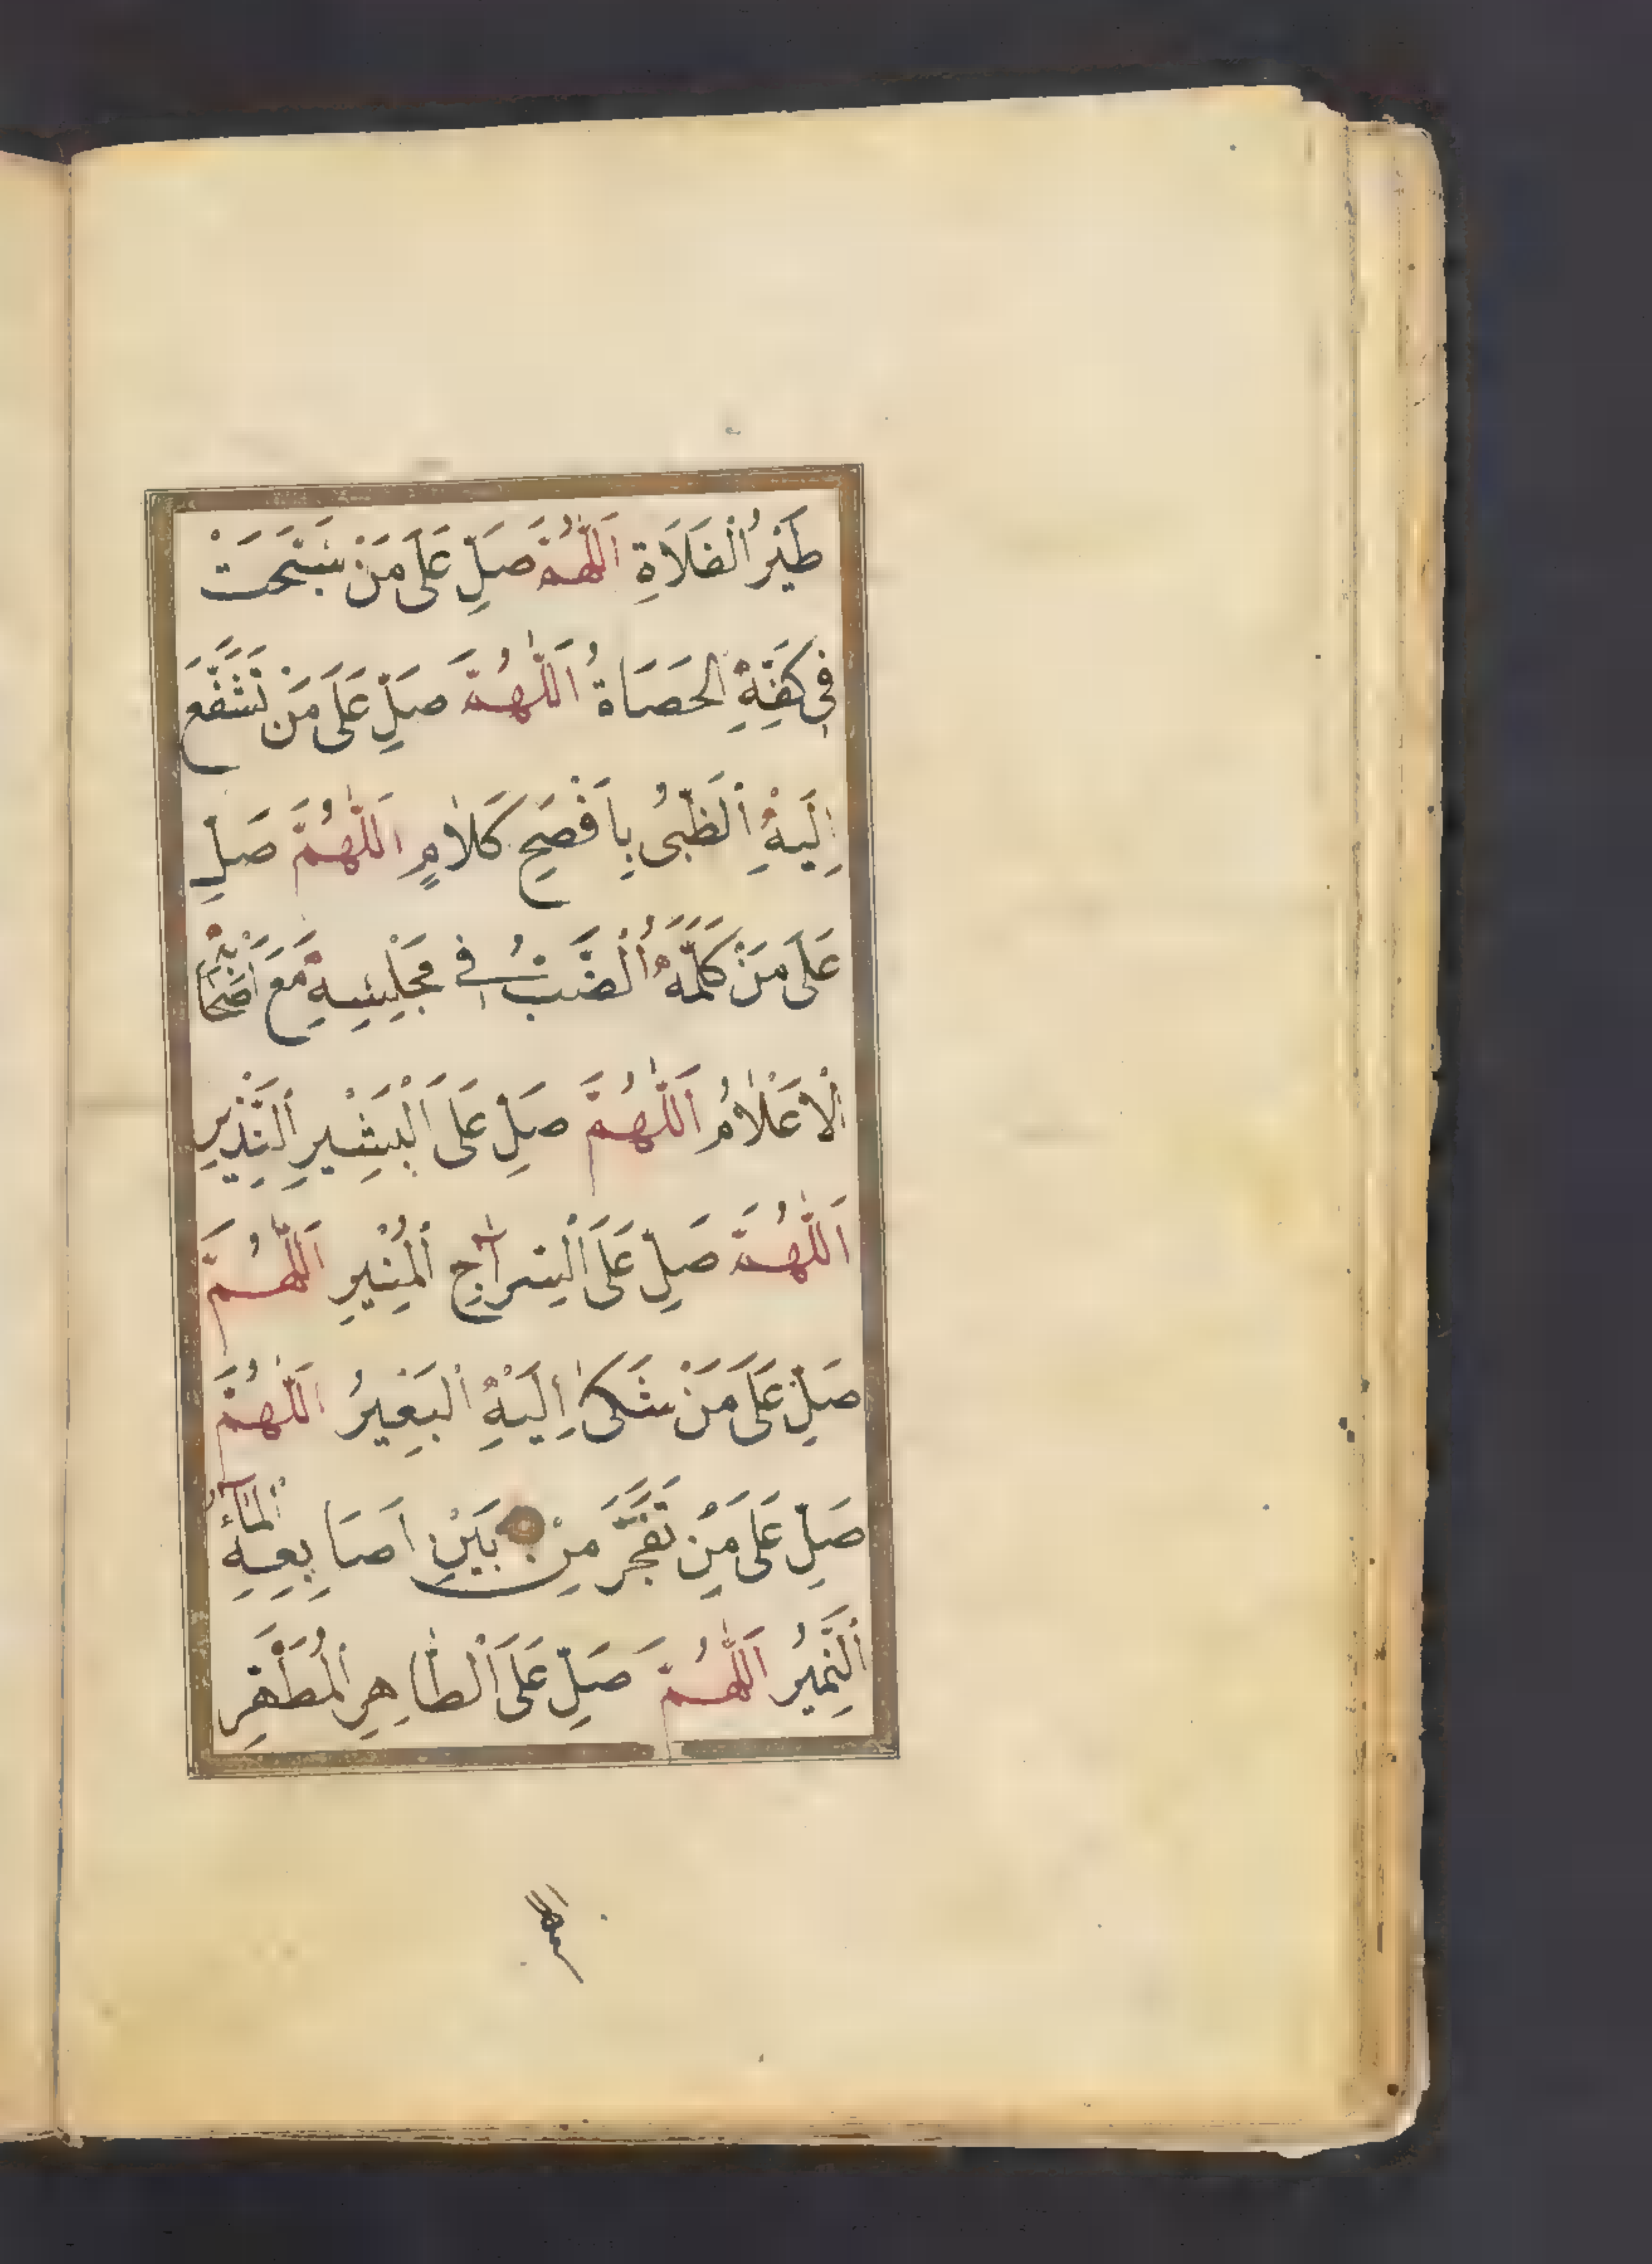 طَيْرُ الْفَلَاةِ اَللّٰهُمَّ صَلِّ عَلَى مَنْ سَبَّحَتْ
فِي كَفِّهِ الْحَصَاةُ اَللّٰهُمَّ صَلِّ عَلَى مَنْ تَشَفَّعَ
اِلَيْهِ الظَّبْىُ بِاَفْصَحِ كَلَامٍ اَللّٰهُمَّ صَلِّ
عَلَى مَنْ كَلَّمَهُ الضَّبُّ فِي مَجْلِسِهِ مَعَ اَصْحَابِهِ
الْاَعْلَامِ اَللّٰهُمَّ صَلِّ عَلَى الْبَشِيرِ النَّذِيرِ
اَللّٰهُمَّ صَلِّ عَلَى السِّرَاجِ الْمُنِيرِ اَللّٰهُمَّ
صَلِّ عَلَى مَنْ شَكَىٰ اِلَيْهِ الْبَعِيرُ اَللّٰهُمَّ
صَلِّ عَلَى مَنْ تَفَجَّرَ مِنْ بَيْنِ اَصَابِعِهِ الْمَآءُ
النَّمِيرُ اَللّٰهُمَّ صَلِّ عَلَى الطَّاهِرِ الْمُطَهَّرِ